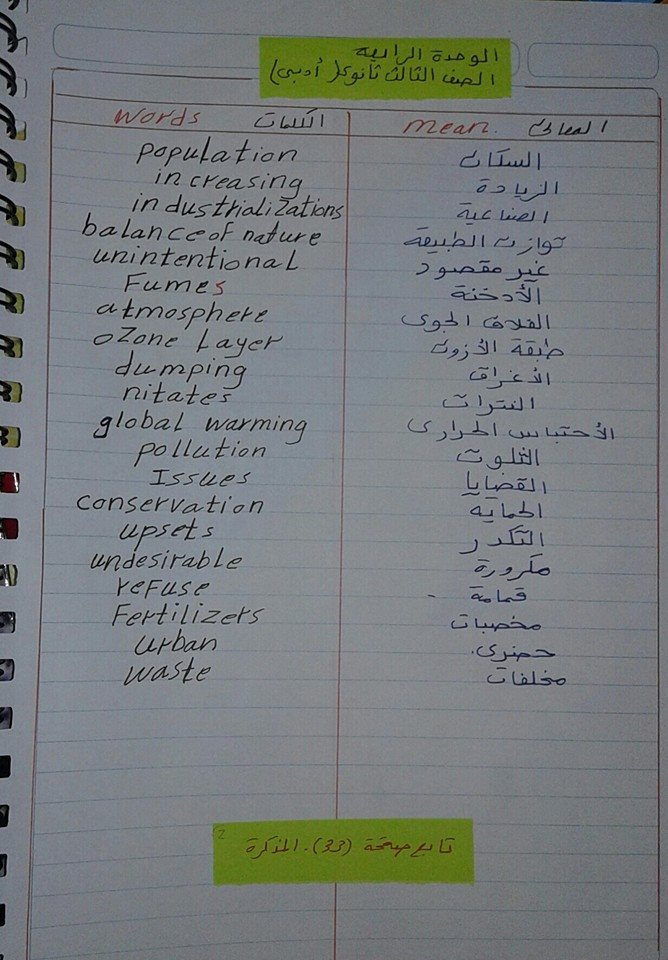 الوحدة الرابعة
الصف الثالث ثانوى (أدبى)
Words الكلمات mean. المعانى
population السكان
increasing الزيادة
industrializations الصناعية
balance of nature توازن الطبيعة
unintentional غير مقصود
Fumes الأدخنة
atmosphere الغلاف الجوى
ozone Layer طبقة الأزون
dumping الأغراق
nitates النترات
global warming الأحتباس الحرارى
pollution التلوث
Issues القضايا
conservation الحماية
upsets التكدر
undesirable مكرورة
refuse قمامة
Fertilizers مخصبات
urban حضرى.
waste مخلفات
2
تابع صفحة (33). المذكرة